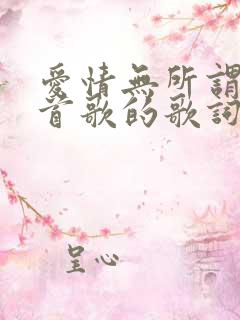 愛情無所謂
首歌的歌詞
呈心